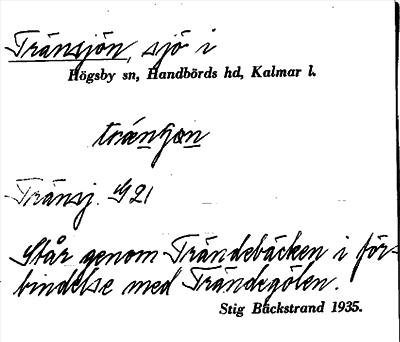 Tränsjön, sjö i
Högsby sn, Handbörds hd, Kalmar l.
Tränsj. G 21
Står genom Trändebäcken i för-
bindelse med Trändegölen.
Stig Bäckstrand 1935.